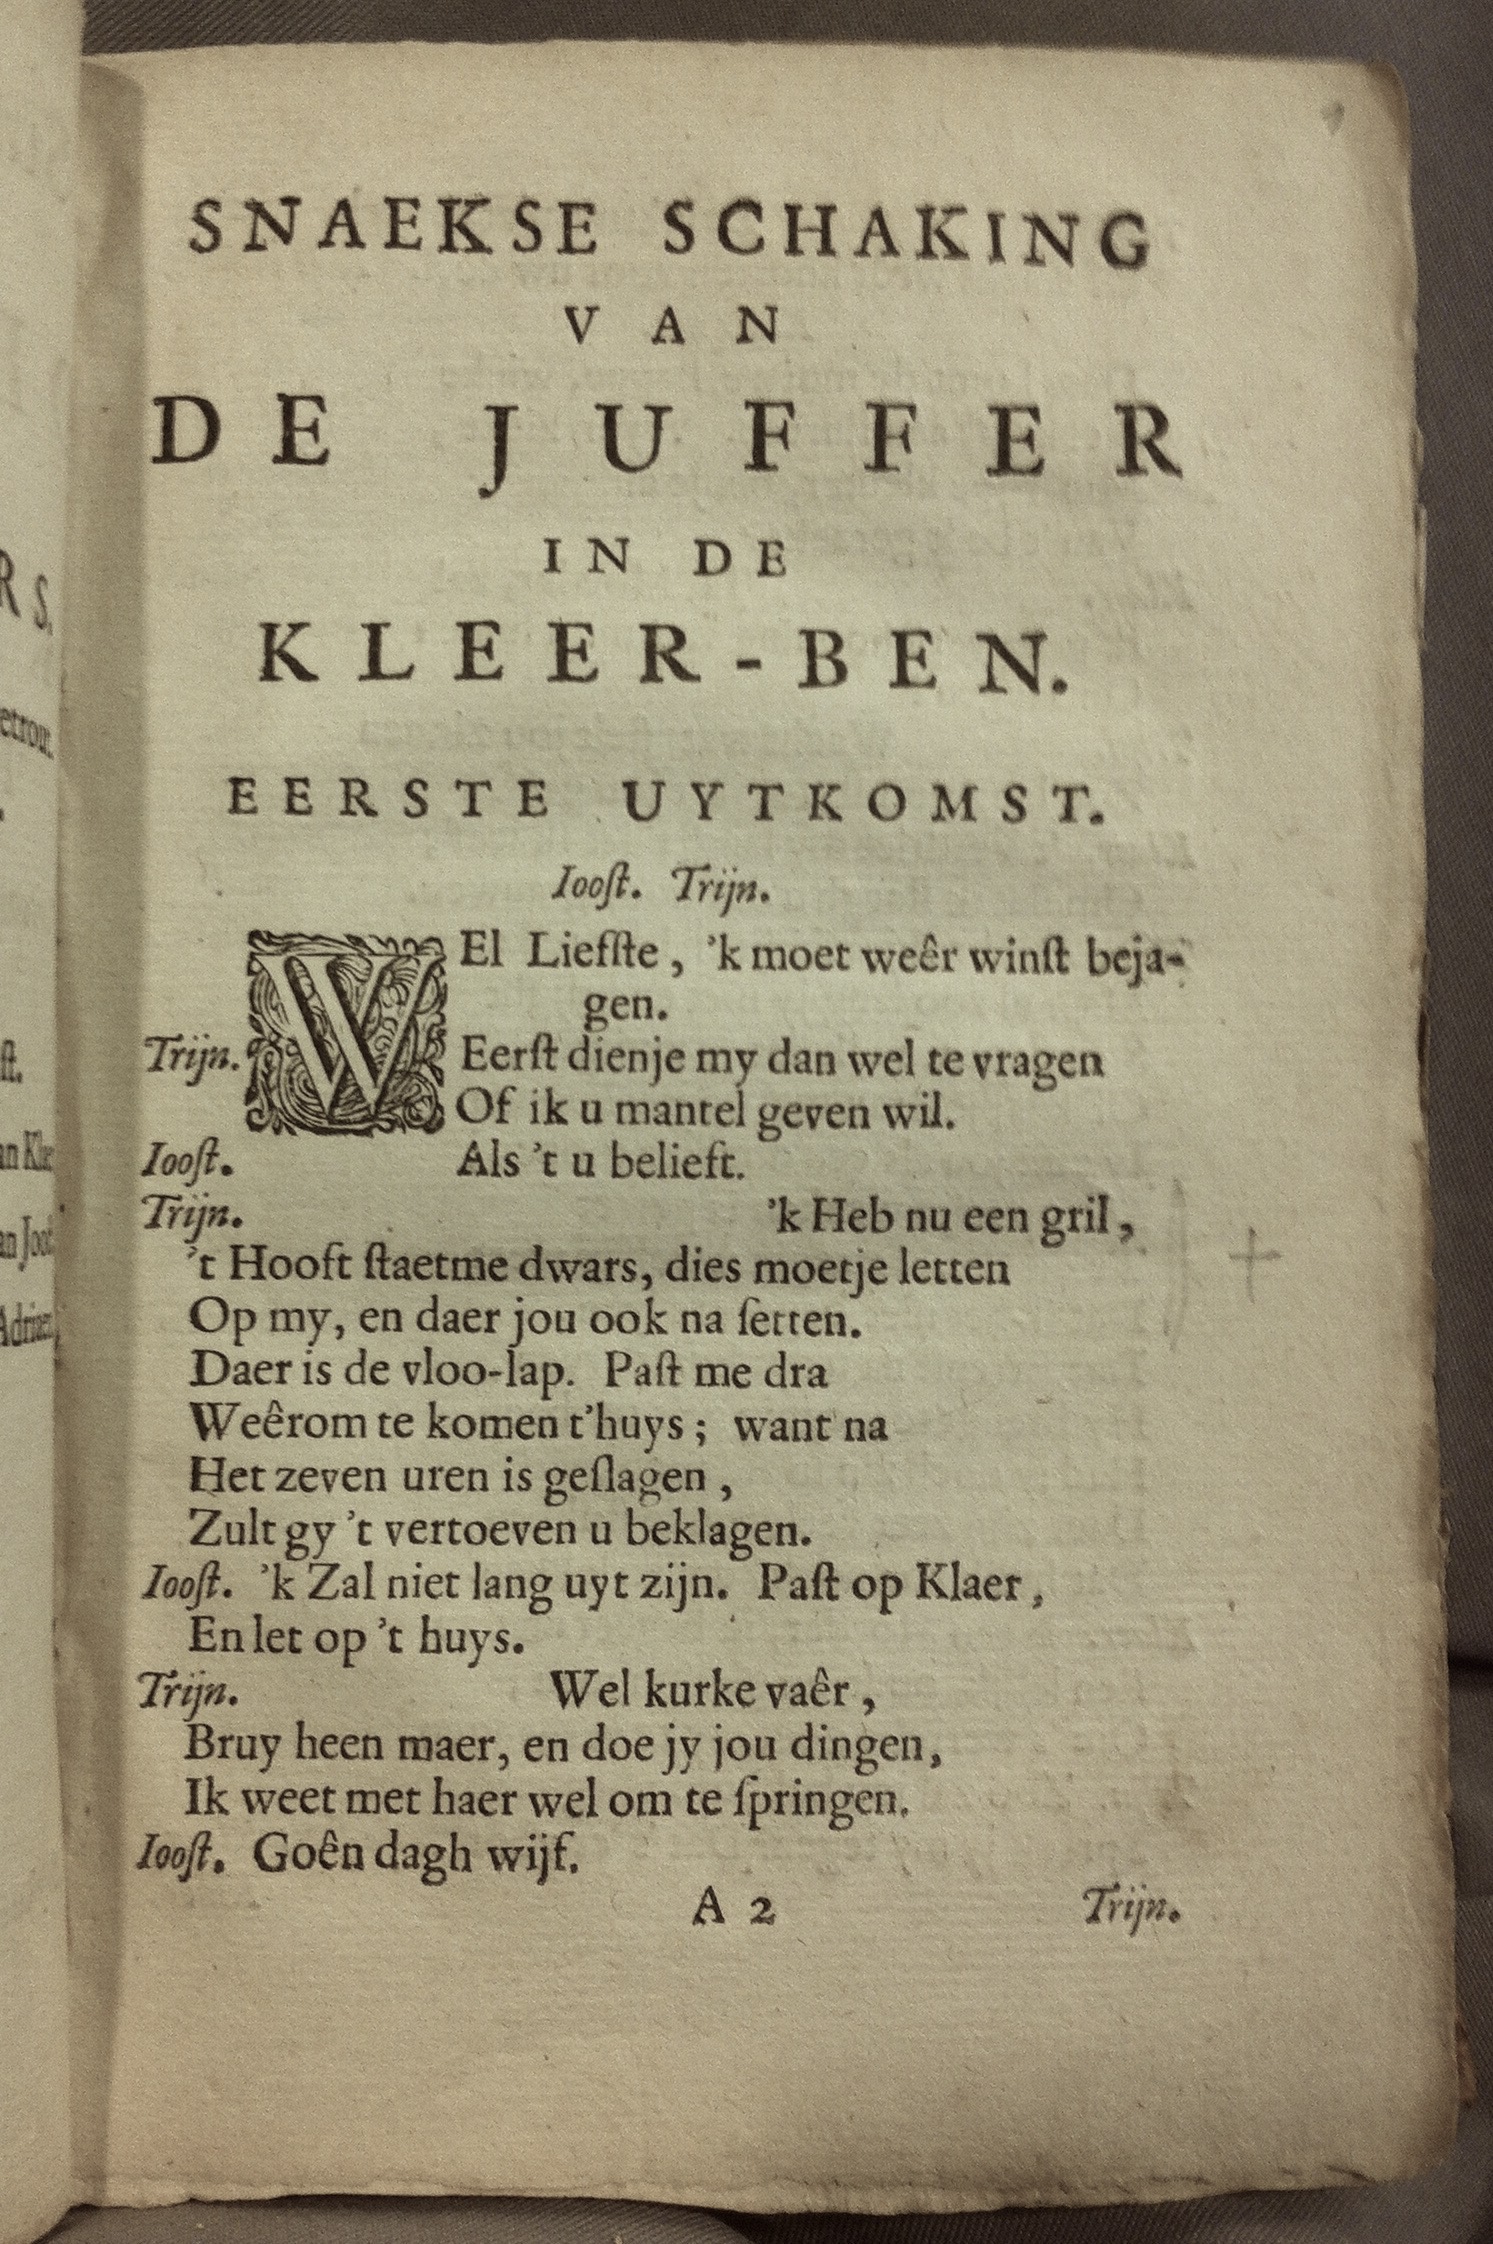 SNAEKSE SCHAKING
VAN
DE JUFFER
IN DE
KLEER-BEN.
EERSTE UYTKOMST.
Iooſt. Trijn.
WEl Liefſte, 'k moet weêr winſt beja-
gen.
Trijn. Eerſt dienje my dan wel te vragen
Of ik u mantel geven wil.
Iooſt. Als 't u belieft.
Trijn. 'k Heb nu een gril,
't Hooft ſtaetme dwars, dies moetje letten
Op my, en daer jou ook na ſetten.
Daer is de vloo-lap. Paſt me dra
Weêrom te komen t'huys; want na
Het zeven uren is geſlagen,
Zult gy 't vertoeven u beklagen.
Iooſt. 'k Zal niet lang uyt zijn. Paſt op Klaer,
En let op 't huys.
Trijn. Wel kurke vaêr,
Bruy heen maer, en doe jy jou dingen,
Ik weet met haer wel om te ſpringen.
Iooſt. Goên dagh wijf.
A 2 Trijn.